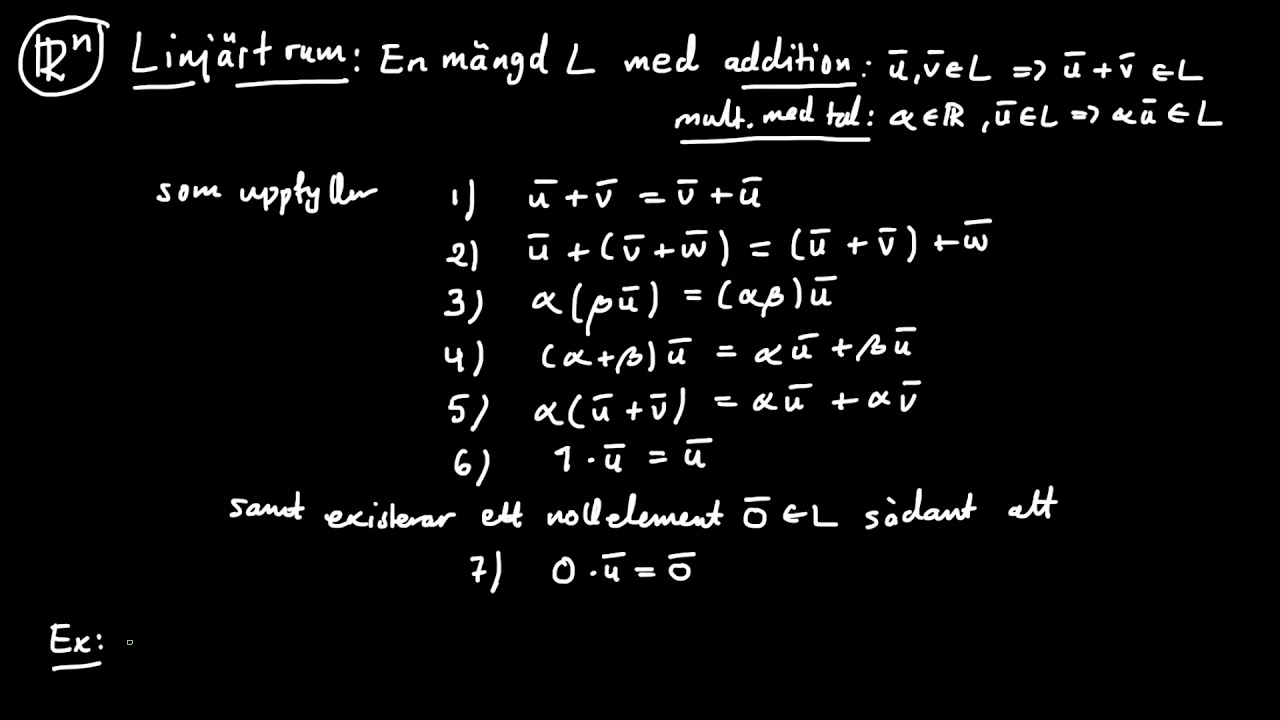 ℝⁿ Linjärt rum: En mängd L med addition: ū, v̄ ∈ L => ū + v̄ ∈ L
mult. med tal: α ∈ ℝ, ū ∈ L => αū ∈ L
som uppfyller 1) ū + v̄ = v̄ + ū
2) ū + (v̄ + w̄) = (ū + v̄) + w̄
3) α(βū) = (αβ)ū
4) (α+β)ū = αū + βū
5) α(ū + v̄) = αū + αv̄
6) 1·ū = ū
samt existerar ett nollelement 0̄ ∈ L sådant att
7) 0·ū = 0̄
Ex: